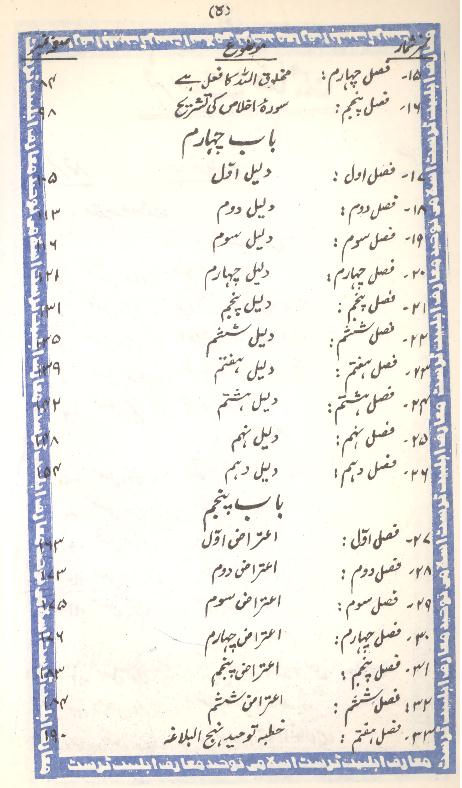 (۵)
نمبرشمار موضوع صفحہ نمبر
۱۵- فصل چہارم: مخلوق اللہ کا فعل ہے ۸۴
۱۶- فصل پنجم: سورۂ اخلاص کی تشریح ۹۸
باب چہارم
۱۷- فصل اول: دلیل اوّل ۱۰۵
۱۸- فصل دوم: دلیل دوم ۱۱۳
۱۹- فصل سوم: دلیل سوم ۱۱۶
۲۰- فصل چہارم: دلیل چہارم ۱۲۱
۲۱- فصل پنجم: دلیل پنجم ۱۳۱
۲۲- فصل ششم: دلیل ششم ۱۳۵
۲۳- فصل ہفتم: دلیل ہفتم ۱۳۹
۲۴- فصل ہشتم: دلیل ہشتم
۲۵- فصل نہم: دلیل نہم
۲۶- فصل دہم: دلیل دہم ۱۵۴
باب پنجم
۲۷- فصل اوّل: اعتراض اوّل ۱۶۳
۲۸- فصل دوم: اعتراض دوم ۱۷۳
۲۹- فصل سوم: اعتراض سوم ۱۷۵
۳۰- فصل چہارم: اعتراض چہارم
۳۱- فصل پنجم: اعتراض پنجم ۱۸۳
۳۲- فصل ششم: اعتراض ششم ۱۸۴
۳۳- فصل ہفتم: خطبہ توحید نہج البلاغہ ۱۹۰
معارف اہلبیت ٹرسٹ اسلامی توحید معارف اہلبیت ٹرسٹ